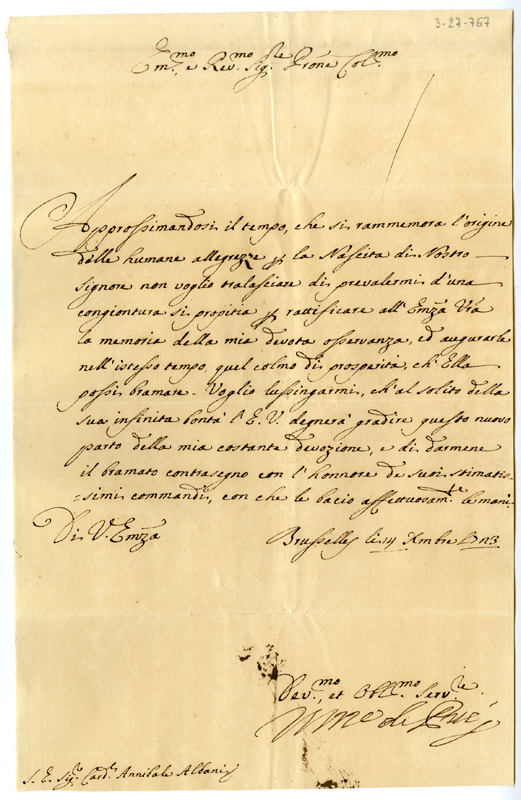 3-27-767
Em.mo e Rev.mo Sig.re Prone Col.mo
Approssimandosi il tempo, che si rammemora l'origine
delle humane allegrezze per la Nascita di Nostro
Signore non voglio tralasciare di prevalermi d'una
congiontura si propitia per rattificare all' Emza Vra
la memoria della mia devota osservanza, ed augurarle
nell'istesso tempo, quel colmo di prosperità, ch' Ella
possi bramare. Voglio lussingarmi, ch' al solito della
sua infinita bontà l' E. V. degnerà gradire questo nuovo
parto della mia costante devozione, e di darmene
il bramato contrasegno con l' honnore de suoi stimatis=
=simi commandi, con che le bacio affettuosam.te le mani.
Di V. Emza
Brusselles li 14 Xmbre
Dev.mo et Obl.mo Serv.re
de
S. E. Sig.r Card.l Annibale Albani